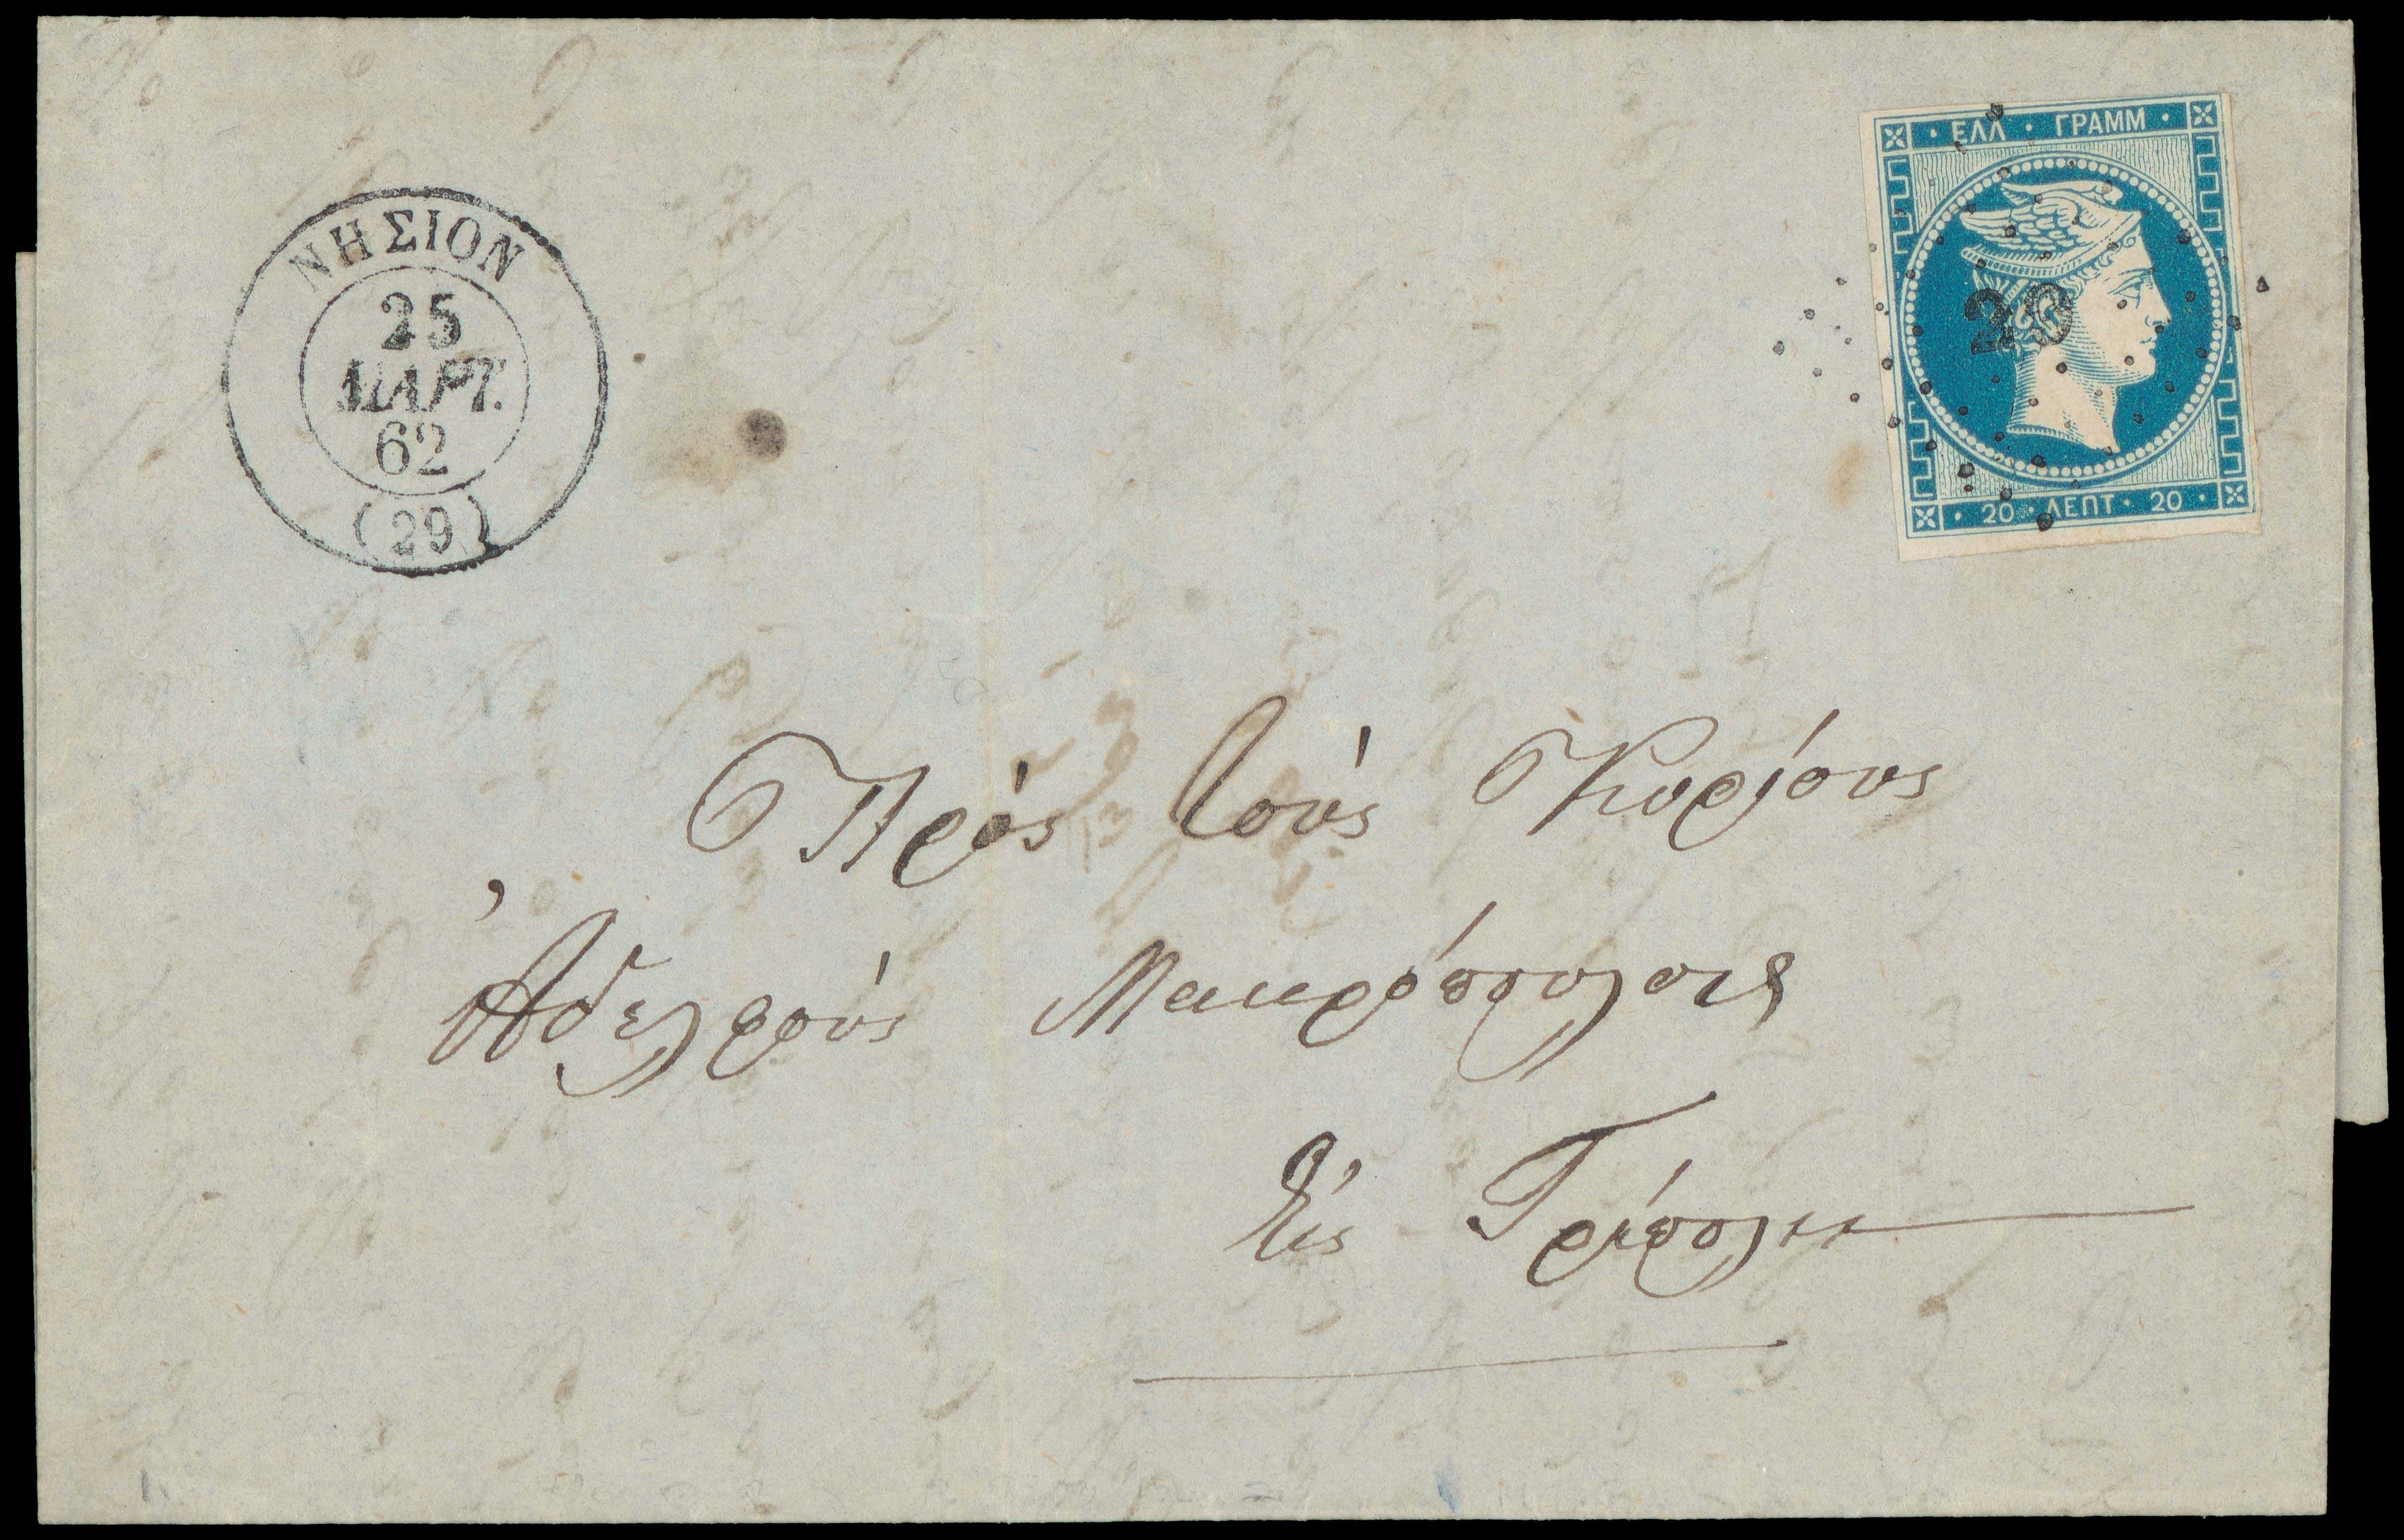 ΝΗΣΙΟΝ
25
ΜΑΡΤ.
62
(29)
ΕΛΛ · ΓΡΑΜΜ
29
20 · ΛΕΠΤ · 20
Πρὸς τοὺς Κυρίους
Ἀδελφοὺς Μακροπούλους
Εἰς Τρίπολιν